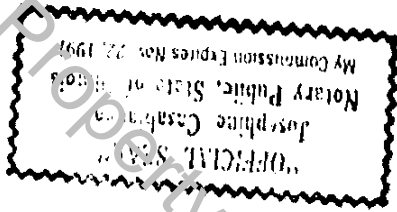 "OFFICIAL SEAL"
Josephine
Notary Public, State of Illinois
My Commission Expires Nov. 22, 199
Property